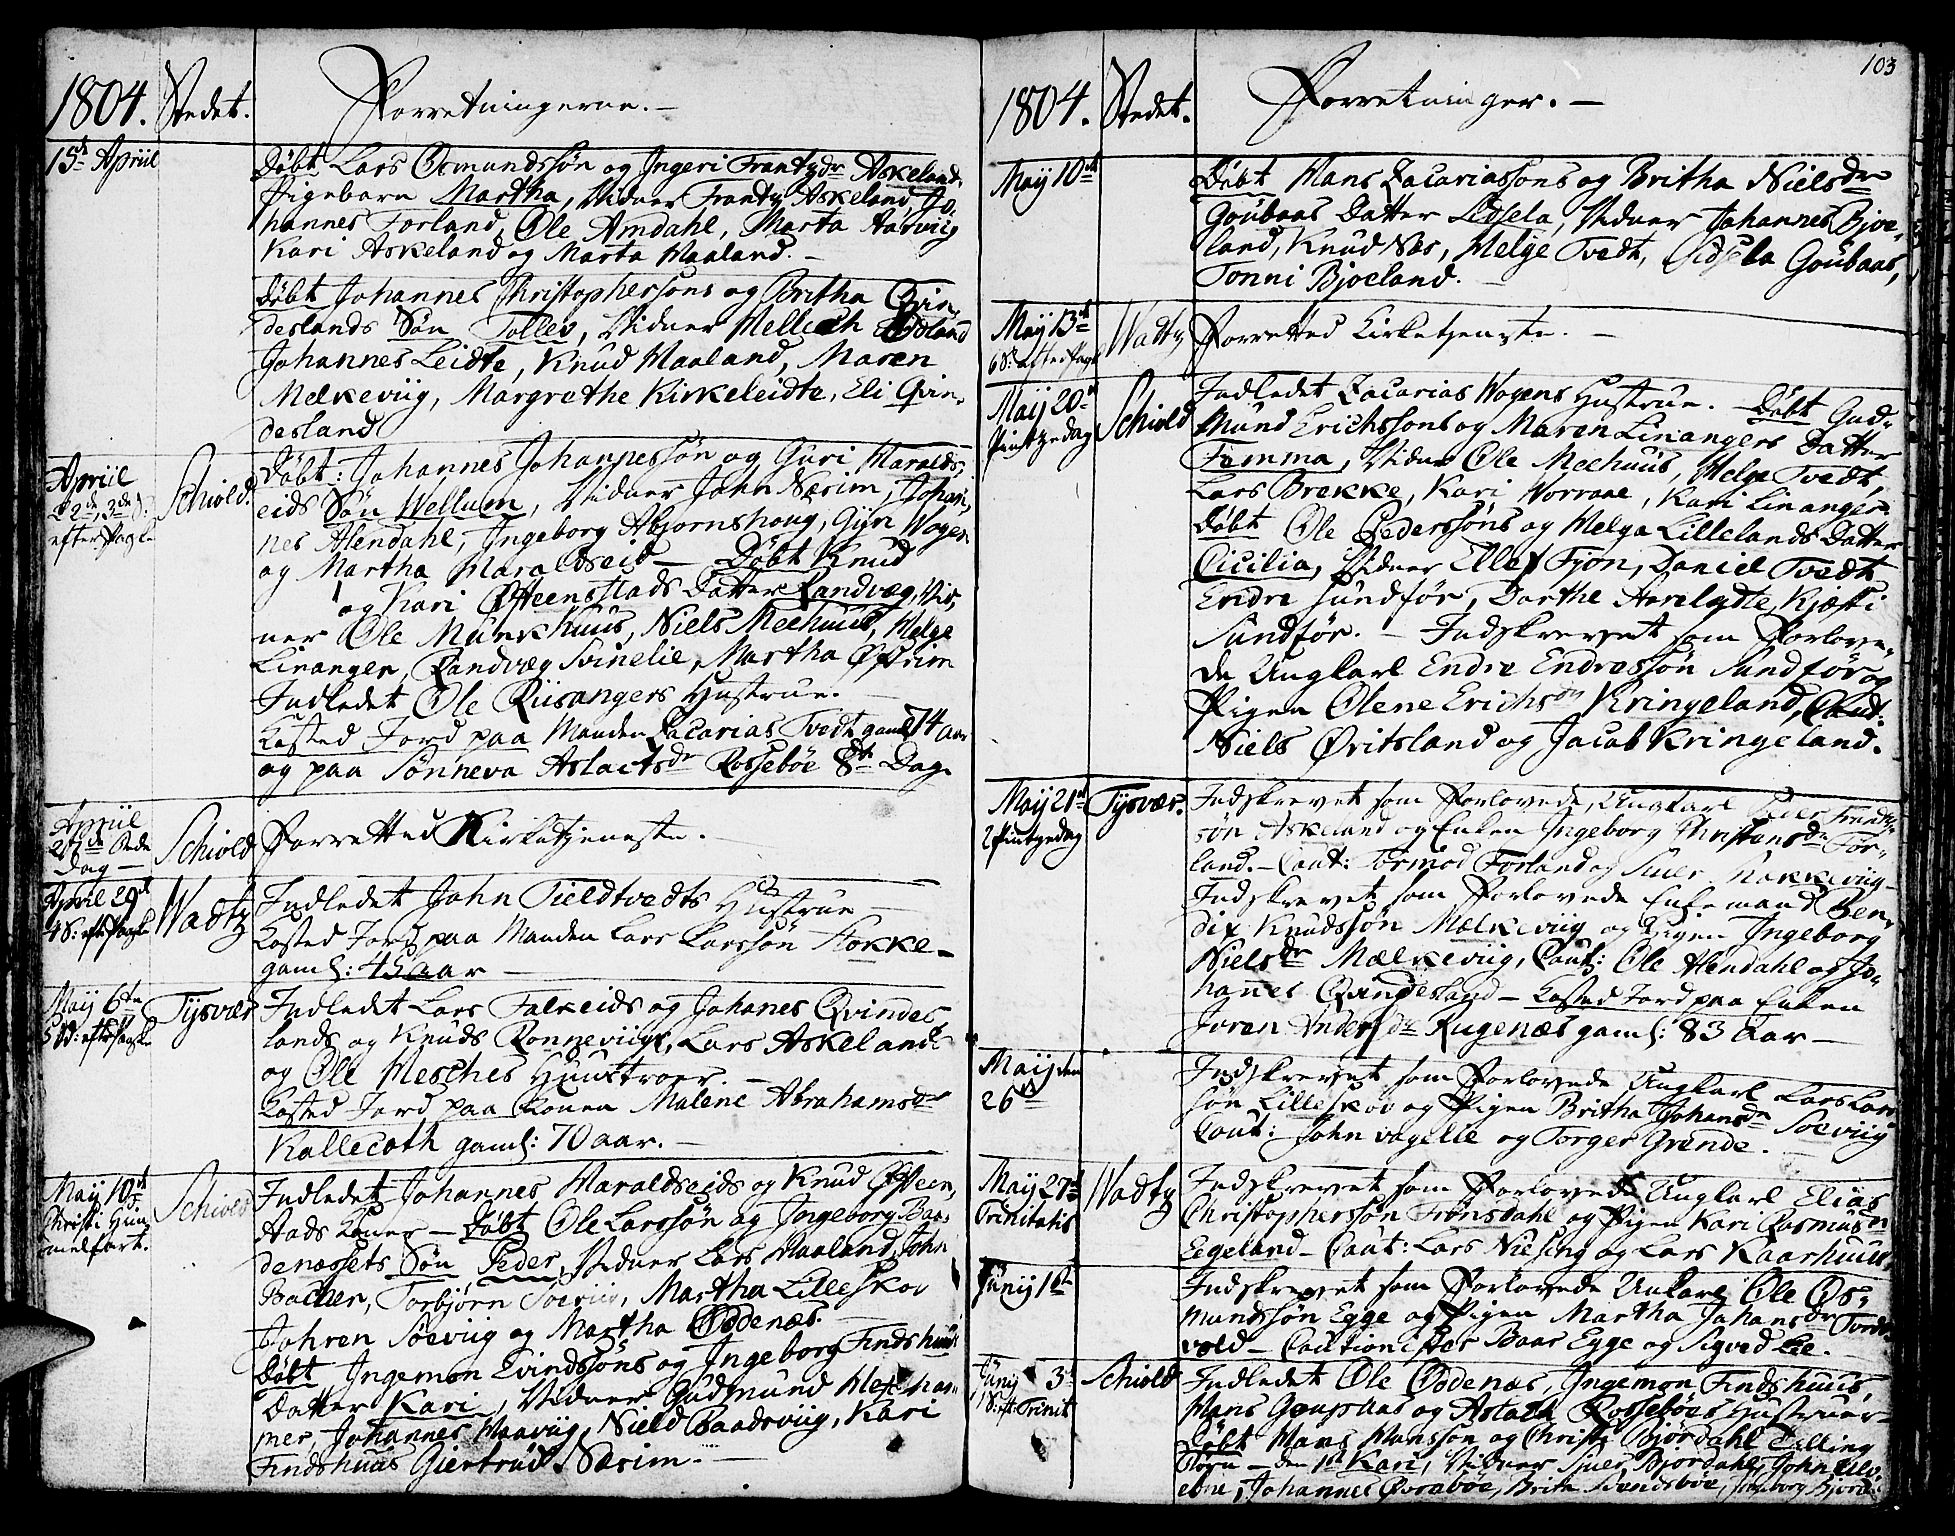 1804. Stedet. Forretningerne. —
15de Apriil
Döbt Lars Osmundssøn og Ingeri Frantzdr Askeland
Pigebarn Martha, Vidner Frantz Askeland, Jo-
hannes Forland, Ole Amdahl, Marta Aarviig
Kari Askeland og Marta Haaland. —
Döbt Johannes Christophersøns og Britha Qvin-
deslands Søn Tollev, Vidner Mellich Eidsland
Johannes Leidte, Knud Haaland, Maren
Melkeviig, Margrethe Kirkeleidte, Eli Qvin-
desland
Apriil
22de, 3de S.
efter Paaske
Schiold.
Döbt: Johannes Johannessøn og Guri Haralds-
eids Søn Wellum, Vidner John Nærim, Johan-
nes Alendahl, Ingeborg Abjornshoug, Gyri Wogen
og Martha Haraldseid — Döbt Knud
og Kari Øfteenstads Datter Randvæg, Vid-
ner Ole Munkhuus, Niels Meehuus, Helge
Linanger, Randvæg Svinelie, Martha Østrim
Indledet Ole Riisangers Hustrue. —
Kasted Jord paa Manden Zacarias Tvedt gaml 74 aar
og paa Sønneva Aslacksdr Rossebøe 8te Dage
Apriil
27de Bede
Dag —
Schiold
Forretted Kirketjeneste. —
April 29de
4 S: eft Paaske
Wadtz
Indledet John Tieldtvedts Hustrue —
Kasted Jord paa Manden Lars Larssøn Stokke-
gaml: 45 aar —
May 6te
5 S: eft Paaske
Tysvær
Indledet Lars Falkeids og Johanes Qvindes
lands og Knuds Ronneviigs, Lars Askelands
og Ole Hesches Huustroer. —
Kasted Jord paa Konen Malene Abrahamsdr
Kallecoth gaml: 70 aar. —
May 10de
Christi Him
melfart.
Schiold
Indledet Johannes Haraldseids og Knud Øfteen-
stads Koner — Döbt Ole Larssøn og Ingeborg Baa-
denæssets Søn Peder, Vidner Lars Haaland, John
Bacher, Torbjørn Soeviig, Martha Lilleskov
Johren Søeviig og Martha Oddenæs. —
Döbt Ingemon Evindssøns og Ingeborg Findshuus
Datter Kari, Vidner Gudmund Ham-
mer Johannes Haaviig, Nield Baadsviig, Kari
Findshuus Giertrud Nærim. —
103
1804. Stedet. Forretninger. —
Maÿ 10de
Döbt Hans Zacariassøns og Britha Nielsdr
Goubaas Datter Sidsela, Vidner Johannes Bjoe-
land, Knud Næs, Helge Tvedt, Sidsela Goubaas,
Tonni Bjoeland. —
Maÿ 13de
6 S: efter Paaske
Wadtz
Forretted Kirketjeneste. —
Maÿ 20de
Pintzedag
Schiold
Indledet Zacarias Wogens Hustrue. Döbt Gud-
mund Erichssøns og Maren Linangers Datter
Femma, Vidner Ole Meehuus, Helge Tvedt,
Lars Brekke, Kari Worraae, Kari Linanger
Döbt Ole Pederssøns og Helga Lillelands Datter
Cicilia, Vidner Ellef Fjon, Daniel Tvedt
Endre Sundfør, Dorthe Aarelydte, Kjesti
Sundför. — Indskrevet som Forlove-
de Ungkarl Endre Endressøn Sundfør og
Pigen Olene Erichsdr Kringeland, Caut:
Niels Øritsland og Jacob Kringeland.
Maÿ 21de
2 Pintzedag
Tysvær.
Indskrevet som Forlovede, Ungkarl Peder Frantz-
søn Askeland og Enken Ingeborg Christensdr For-
land. — Caut: Tormod Forland og Siver Nakkeviig —
Indskrevet som Forlovede Enkemand Ben-
dix Knudssøn Mælkeviig og Pigen Ingeborg
Nielsdr Mælkeviig, Caut: Ole Alendahl og Jo-
hannes Qvindesland — Kasted Jord paa Enken
Joren Andersdr Rugenæs gaml: 83 Aar —
Maij den
26de
Indskrevet som Forlovede Ungkarl Lars Lars
søn Lilleskov og Pigen Britha Johansdr Soeviig
Caut: John vagelle og Torger Grinde. —
Maÿ 27de
Trinitatis
Wadtz
Indskrevet som Forlovede Ungkarl Elias
Christopherssøn Frønsdahl og Pigen Kari Rasmusdr
Eegeland — Caut: Lars Niesing og Lars Kaarhuus
Junij 1ste
Indskrevet som Forlovede Unkarl Ole Os-
mundssøn Egge og Pigen Martha Johansdr Tveite
vold — Cautionister Baar Egge og Sigved Lie. —
Junij 3de
1 S: eft: Trinit
Schiold
Indledet Ole Oddenæs, Ingemon Findshuus,
Hans Goupaas og Aslach Rossebøes Hustruer —
Döbt Hans Hanssøn og Christi Bjordahl Tvilling
Børn — den 1ste Kari, Vidner Siver Bjordahl, John Alv-
eene, Johannes Øvrabøe, Brita Svendsbøe, Ingeborg Bjorda